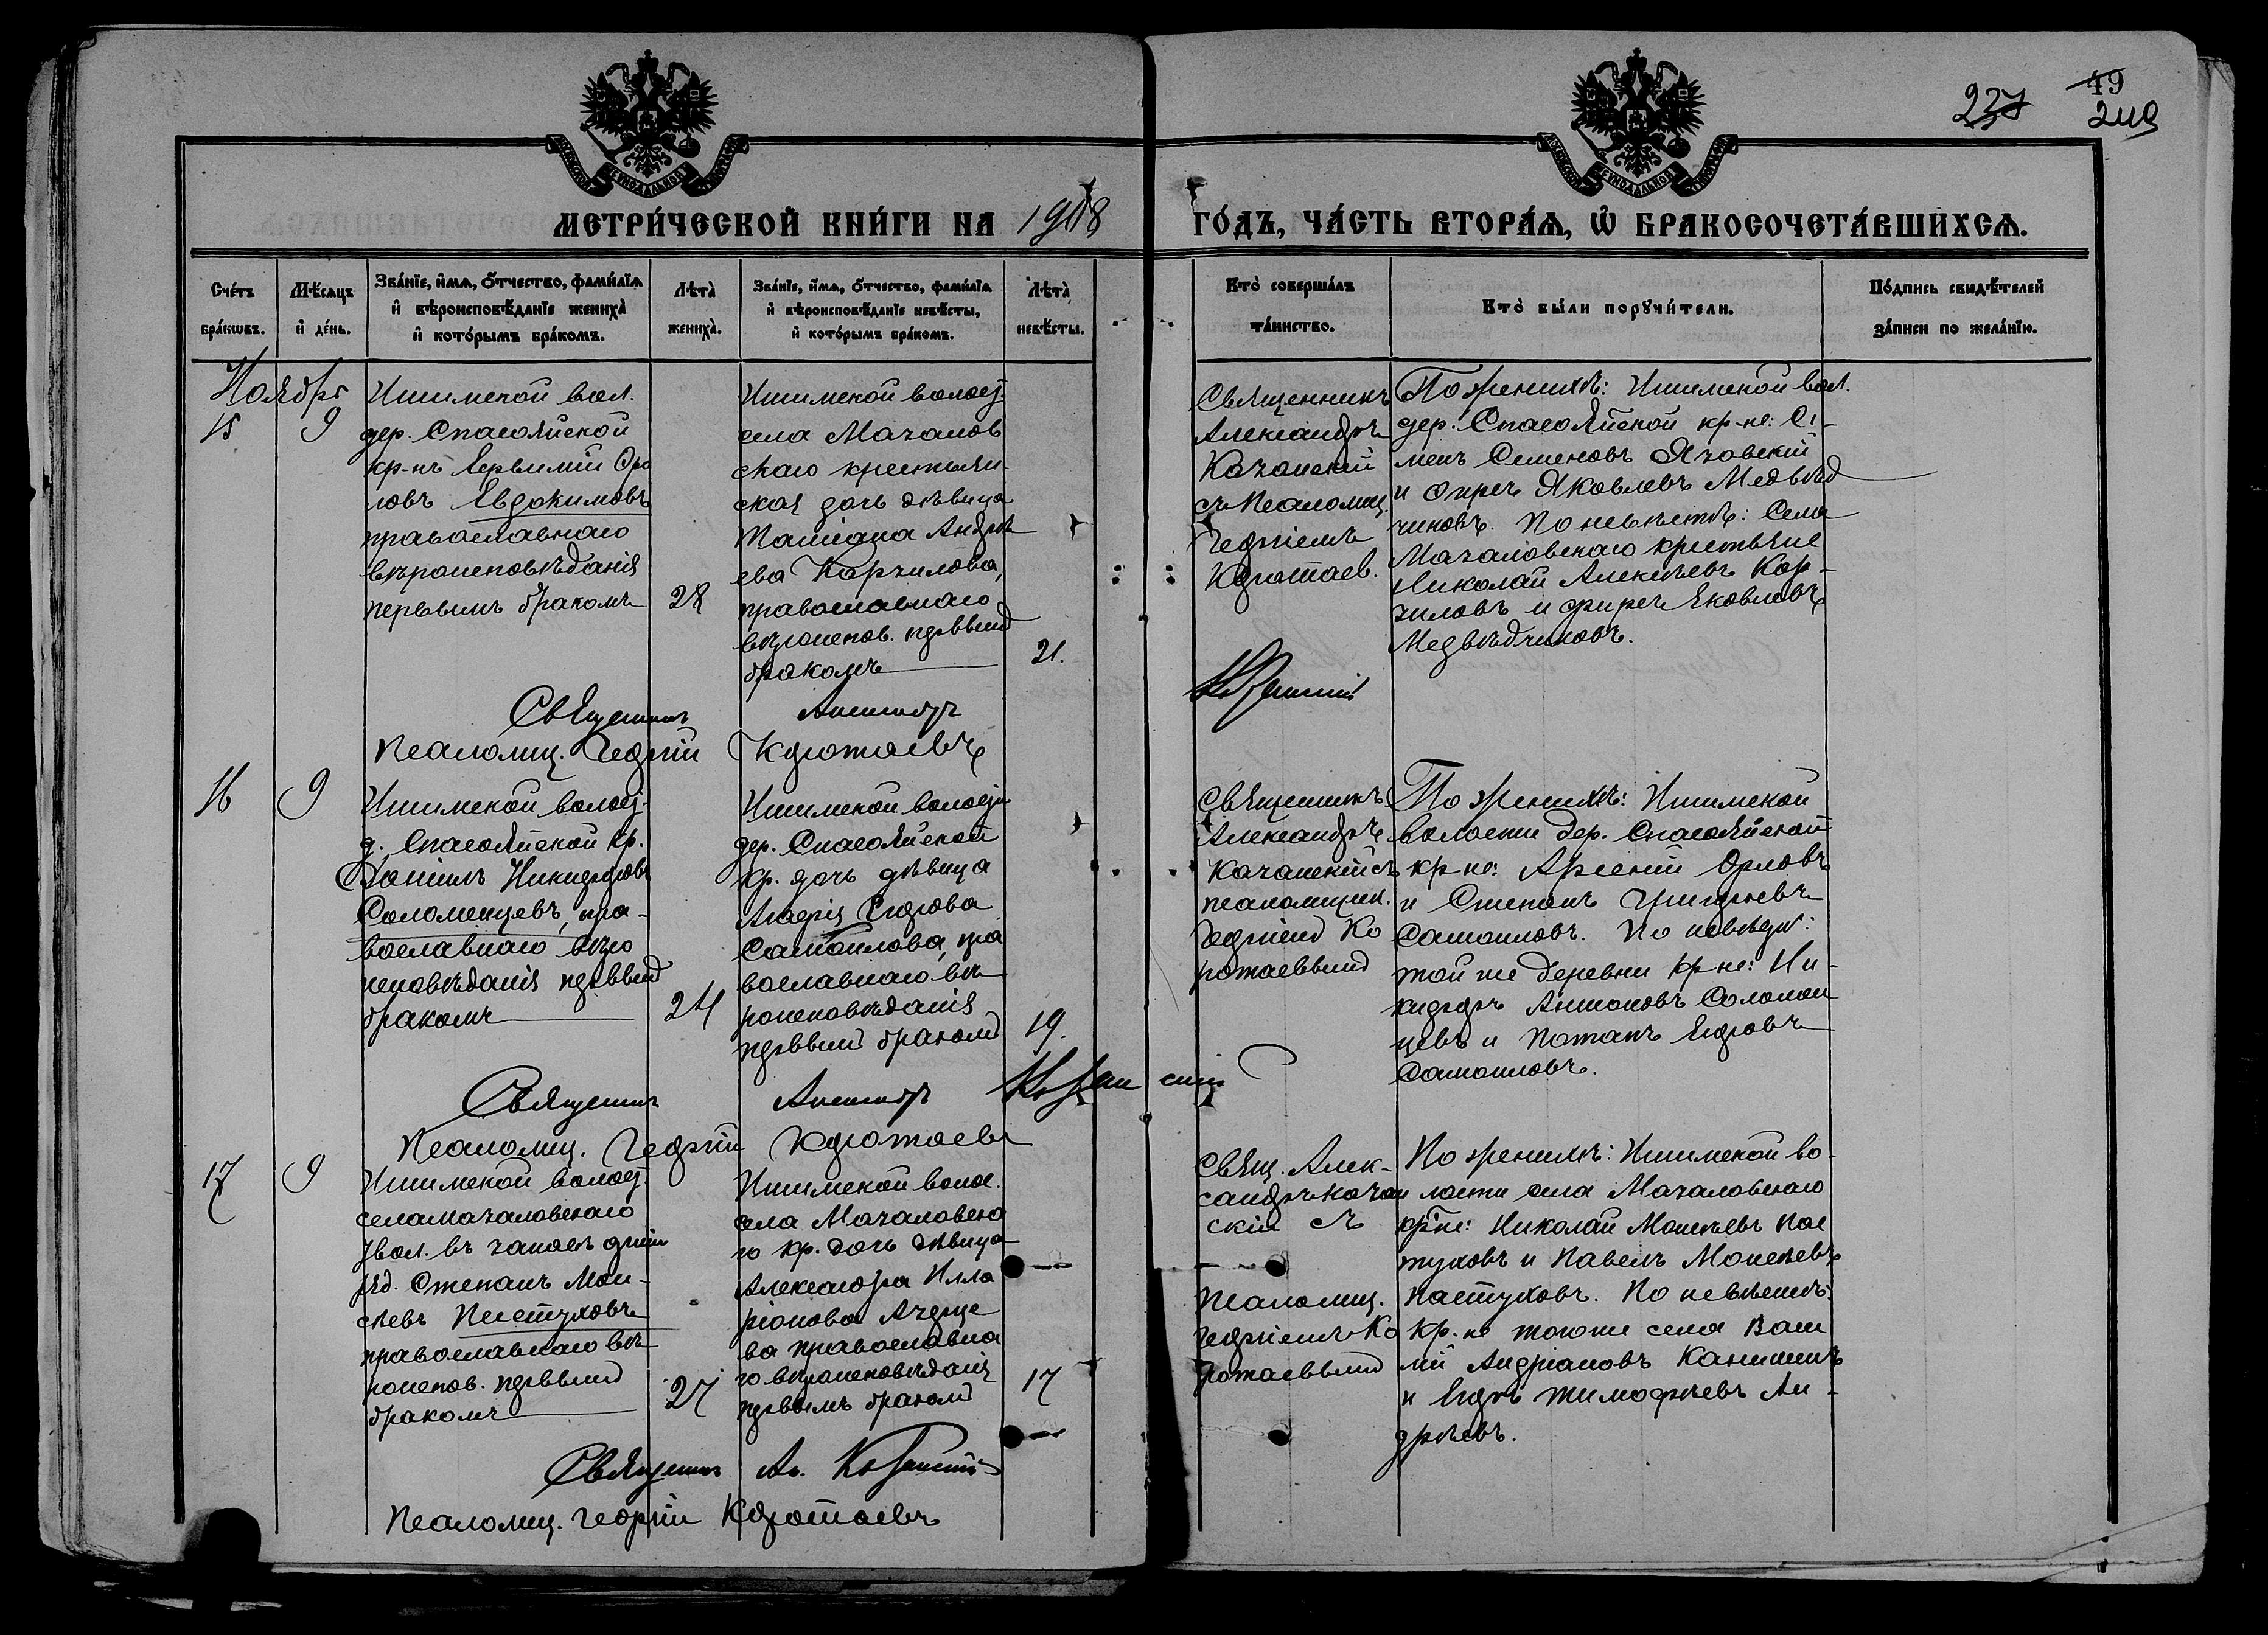 49
237 249
МЕТРИ́ЧЕСКОЙ КНИ́ГИ НА 1908 ГО́ДЪ, ЧА́СТЬ ВТОРА́Ѧ, Ѡ҆ БРАКОСОЧЕТА́ВШИХСѦ.
Сче́тъ бра́кωвъ.
Мѣ́сѧцъ и҆ де́нь.
Зва́нїе, и҆́мѧ, о҆́тчество, фами́лїѧ
и҆ вѣроисповѣ́данїе жениха̀
и҆ кото́рымъ бра́комъ.
Лѣта̀ жениха̀.
Зва́нїе, и҆́мѧ, о҆́тчество, фами́лїѧ
и҆ вѣроисповѣ́данїе невѣ́сты,
и҆ кото́рымъ бра́комъ.
Лѣта̀ невѣ́сты.
Кто̀ соверша́лъ
та́инство.
Кто̀ бы́ли порꙋчи́тели.
По́дпись свидѣ́телей
за́писи по жела́нїю.
Ноябрь
15
9
Ишимской вол.
дер. Спасояйской
кр-нъ
ловъ Евдокимовъ
православнаго
вѣроисповѣданія
первымъ бракомъ
28
Ишимской волос.
села Мачалов
скаго крестьян
ская дочь дѣвица
Татіана Андрѣ
ева Корчилова,
православнаго
вѣроиспов. первым
бракомъ
21.
Священникъ
Александръ
Казанскій
съ псаломщ.
Георгіемъ
Коротаев.
По женихѣ: Ишимской вол.
дер. Спасояйской кр-не: Се-
менъ Семеновъ Язовскій
и Яковлевъ Медвѣд
чиковъ. По невѣстѣ: Села
Мачаловскаго крестьяне
Николай Алексѣевъ Кор-
чиловъ и Яковлевъ
Медвѣдчиковъ.
Священникъ Александръ Казанскій
Псаломщ. Георгій Коротаевъ
16
9
Ишимской волос.
д. Спасояйской кр.
Даніилъ Никифоровъ
Соломенцевъ, пра-
вославнаго вѣро
исповѣданія первым
бракомъ
24
Ишимской волости
дер. Спасояйской
кр. дочь дѣвица
Егорова
Самоилова, пра
вославнаго вѣ
роисповѣданія
первым браком
19.
Священникъ
Александръ
Казанскій съ
псаломщик.
Георгіем Ко
ротаевым
По женихѣ: Ишимской
волости дер. Спасояйской
кр-не: Арсеній Орловъ
и Степанъ Григорьевъ
Самоиловъ. По невѣстѣ:
той же деревни кр-не: Ни-
кифоръ Антоновъ Соломен
цевъ и Потапъ Егоровъ
Самоиловъ.
Священникъ Александръ Казанскій
Псаломщ. Георгій Коротаевъ
17
9
Ишимской волос.
села Мачаловскаго
увол. въ запасъ арміи
ряд. Степанъ Мои-
сеевъ Пастуховъ
православнаго вѣ
роиспов. первым
бракомъ
27
Ишимской волос.
села Мачаловска
го кр. дочь дѣвица
Александра Илла
ріонова
ва православна
го вѣроисповѣданія
первымъ браком
17
Свящ. Алек-
сандръ Казан
скій съ
псаломщ.
Георгіемъ Ко
ротаевым
По женихѣ: Ишимской во-
лости села Мачаловскаго
кр-не: Николай Моисѣевъ Пас
туховъ и Павелъ Моисѣевъ
Пастуховъ. По невѣстѣ:
кр-не того же села Васи
лій Андріановъ Канишинъ
и Егоръ Тимофѣевъ Ан-
дрѣевъ.
Священникъ Ал. Казанскій
Псаломщ. Георгій Коротаевъ